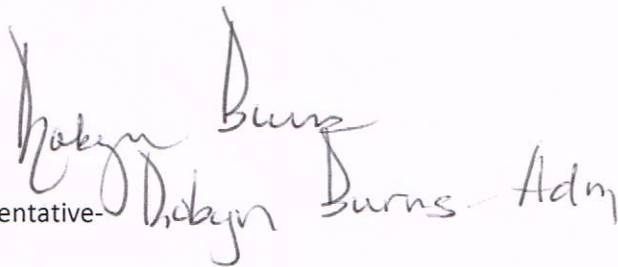 Robyn Burns
entative- Robyn Burns - Adm